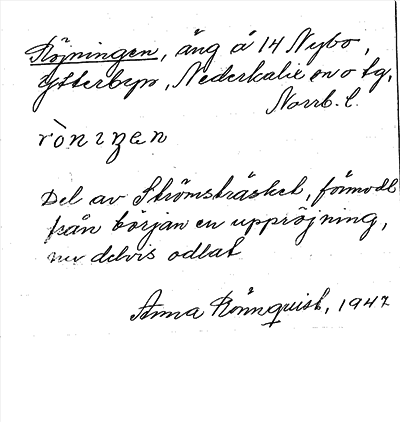 Röjningen, äng å 14 Nybo,
Ytterbyn, Nederkalix sn o tg,
Norrb. l.
rò̀nıŋen
Del av Strömsträsket, förmodl
från början en uppröjning,
nu delvis odlat
Anna Rönnquist, 1947